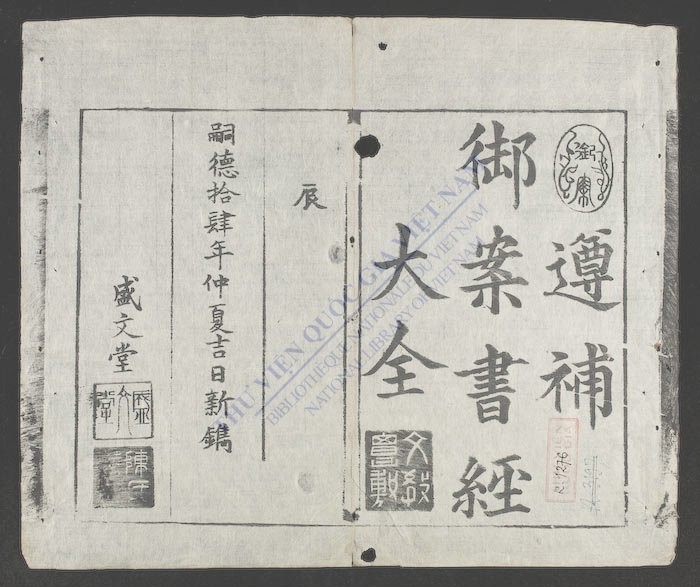 遵補
御案書經
大全
辰
嗣德拾肆年仲夏吉日新鐫
盛文堂
盛文堂
陳氏
THƯ VIỆN QUỐC GIA VIỆT NAM
BIBLIOTHÈQUE NATIONALE DU VIETNAM
NATIONAL LIBRARY OF VIETNAM